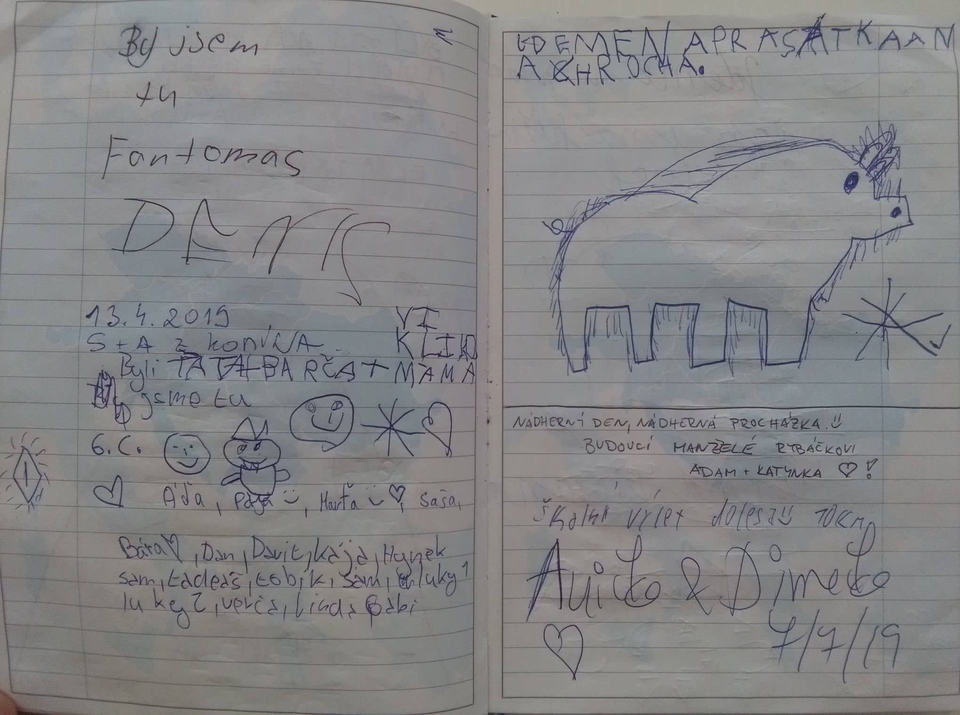 Byl jsem
tu
Fantomas
DENIS
13.4.2019
S+A z
Byli TÁTA BARČA + MAMA
jsme tu
6.C.
Áďa, Pája, Marťa, Saša,
Bára, Dan, David, Kája, Hynek
sam, tadeáš, tobik, sam, luky1
luky2, verča, Linda Gabi
A HROCHA.
NÁDHERNÝ DEN, NÁDHERNÁ PROCHÁZKA
BUDOUCÍ MANŽELÉ RYBÁČKOVI
ADAM + KATYNKA !
školní výlet do lesa 10km
7/7/19